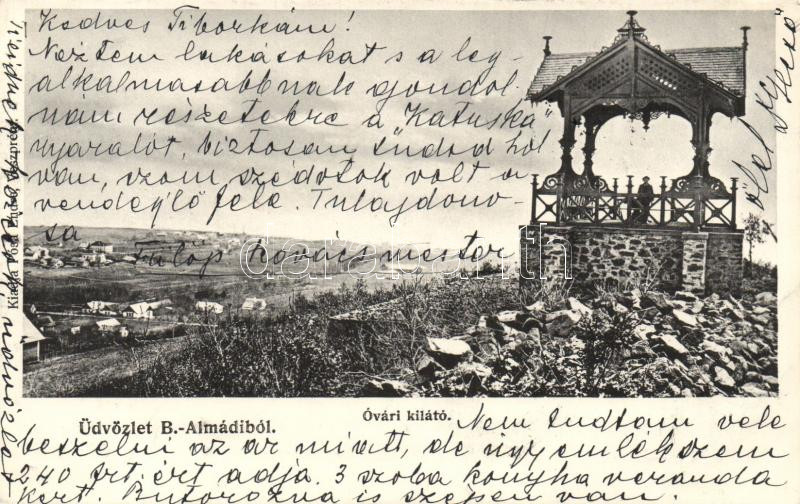 Kedves Tiborkám!
Néztem lakásokat s a leg-
alkalmasabbnak gondol-
nám részetekre a "Katuska"
nyaralót, biztosan tudod hol
van, szom szédotok volt a
vendéglő felé. Tulajdono-
sa
Fülöp Kovácsmester
Kiadja Pósa Endre Veszprém
darabanth.com
Üdvözlet B.-Almádiból.
Óvári kilátó.
Nem tudtam vele
beszélni az ár miatt, de úgy emlékszem
240 frt. ért adja. 3 szoba konyha veranda
kert. Butorozva is szépen van.
ölel Jenő